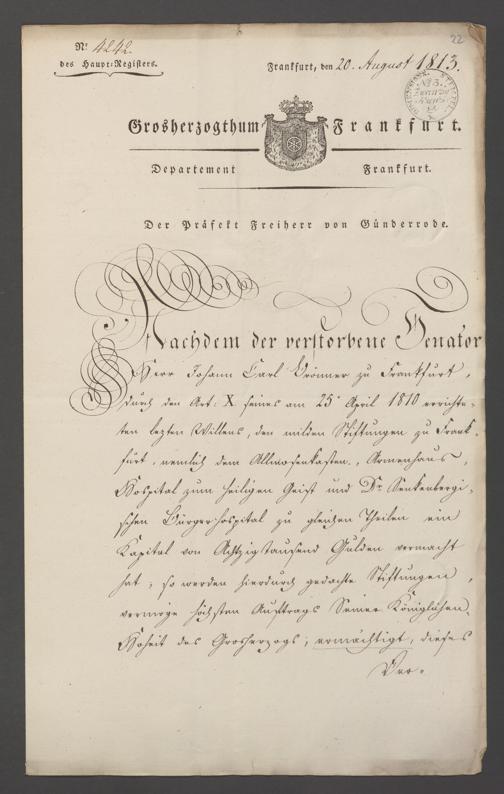 22
Nº 4242.
des Haupt=Registers.
Frankfurt, den 20. August 1813.
Grosherzogthum Frankfurt.
Departement Frankfurt.
Der Präfekt Freiherr von Günderrode.
Nachdem der verstorbene Senator
Herr Johann Carl Brönner zu Frankfurt,
durch den Art: X seines am 25t April 1810 errichte=
ten lezten Willens, den milden Stiftungen zu Frank=
furt, nemlich dem Allmosenkasten, Armenhaus,
Hospital zum heiligen Geist und Dr. Senkenbergi=
schen Bürgerhospital zu gleichen Theilen ein
Kapital von Achtzigtausend Gulden vermacht
hat; so werden hierdurch gedachte Stiftungen,
vermöge höchsten Auftrags Seiner Königlichen
Hoheit des Grosherzogs, ermächtigt, dieses
Ver=